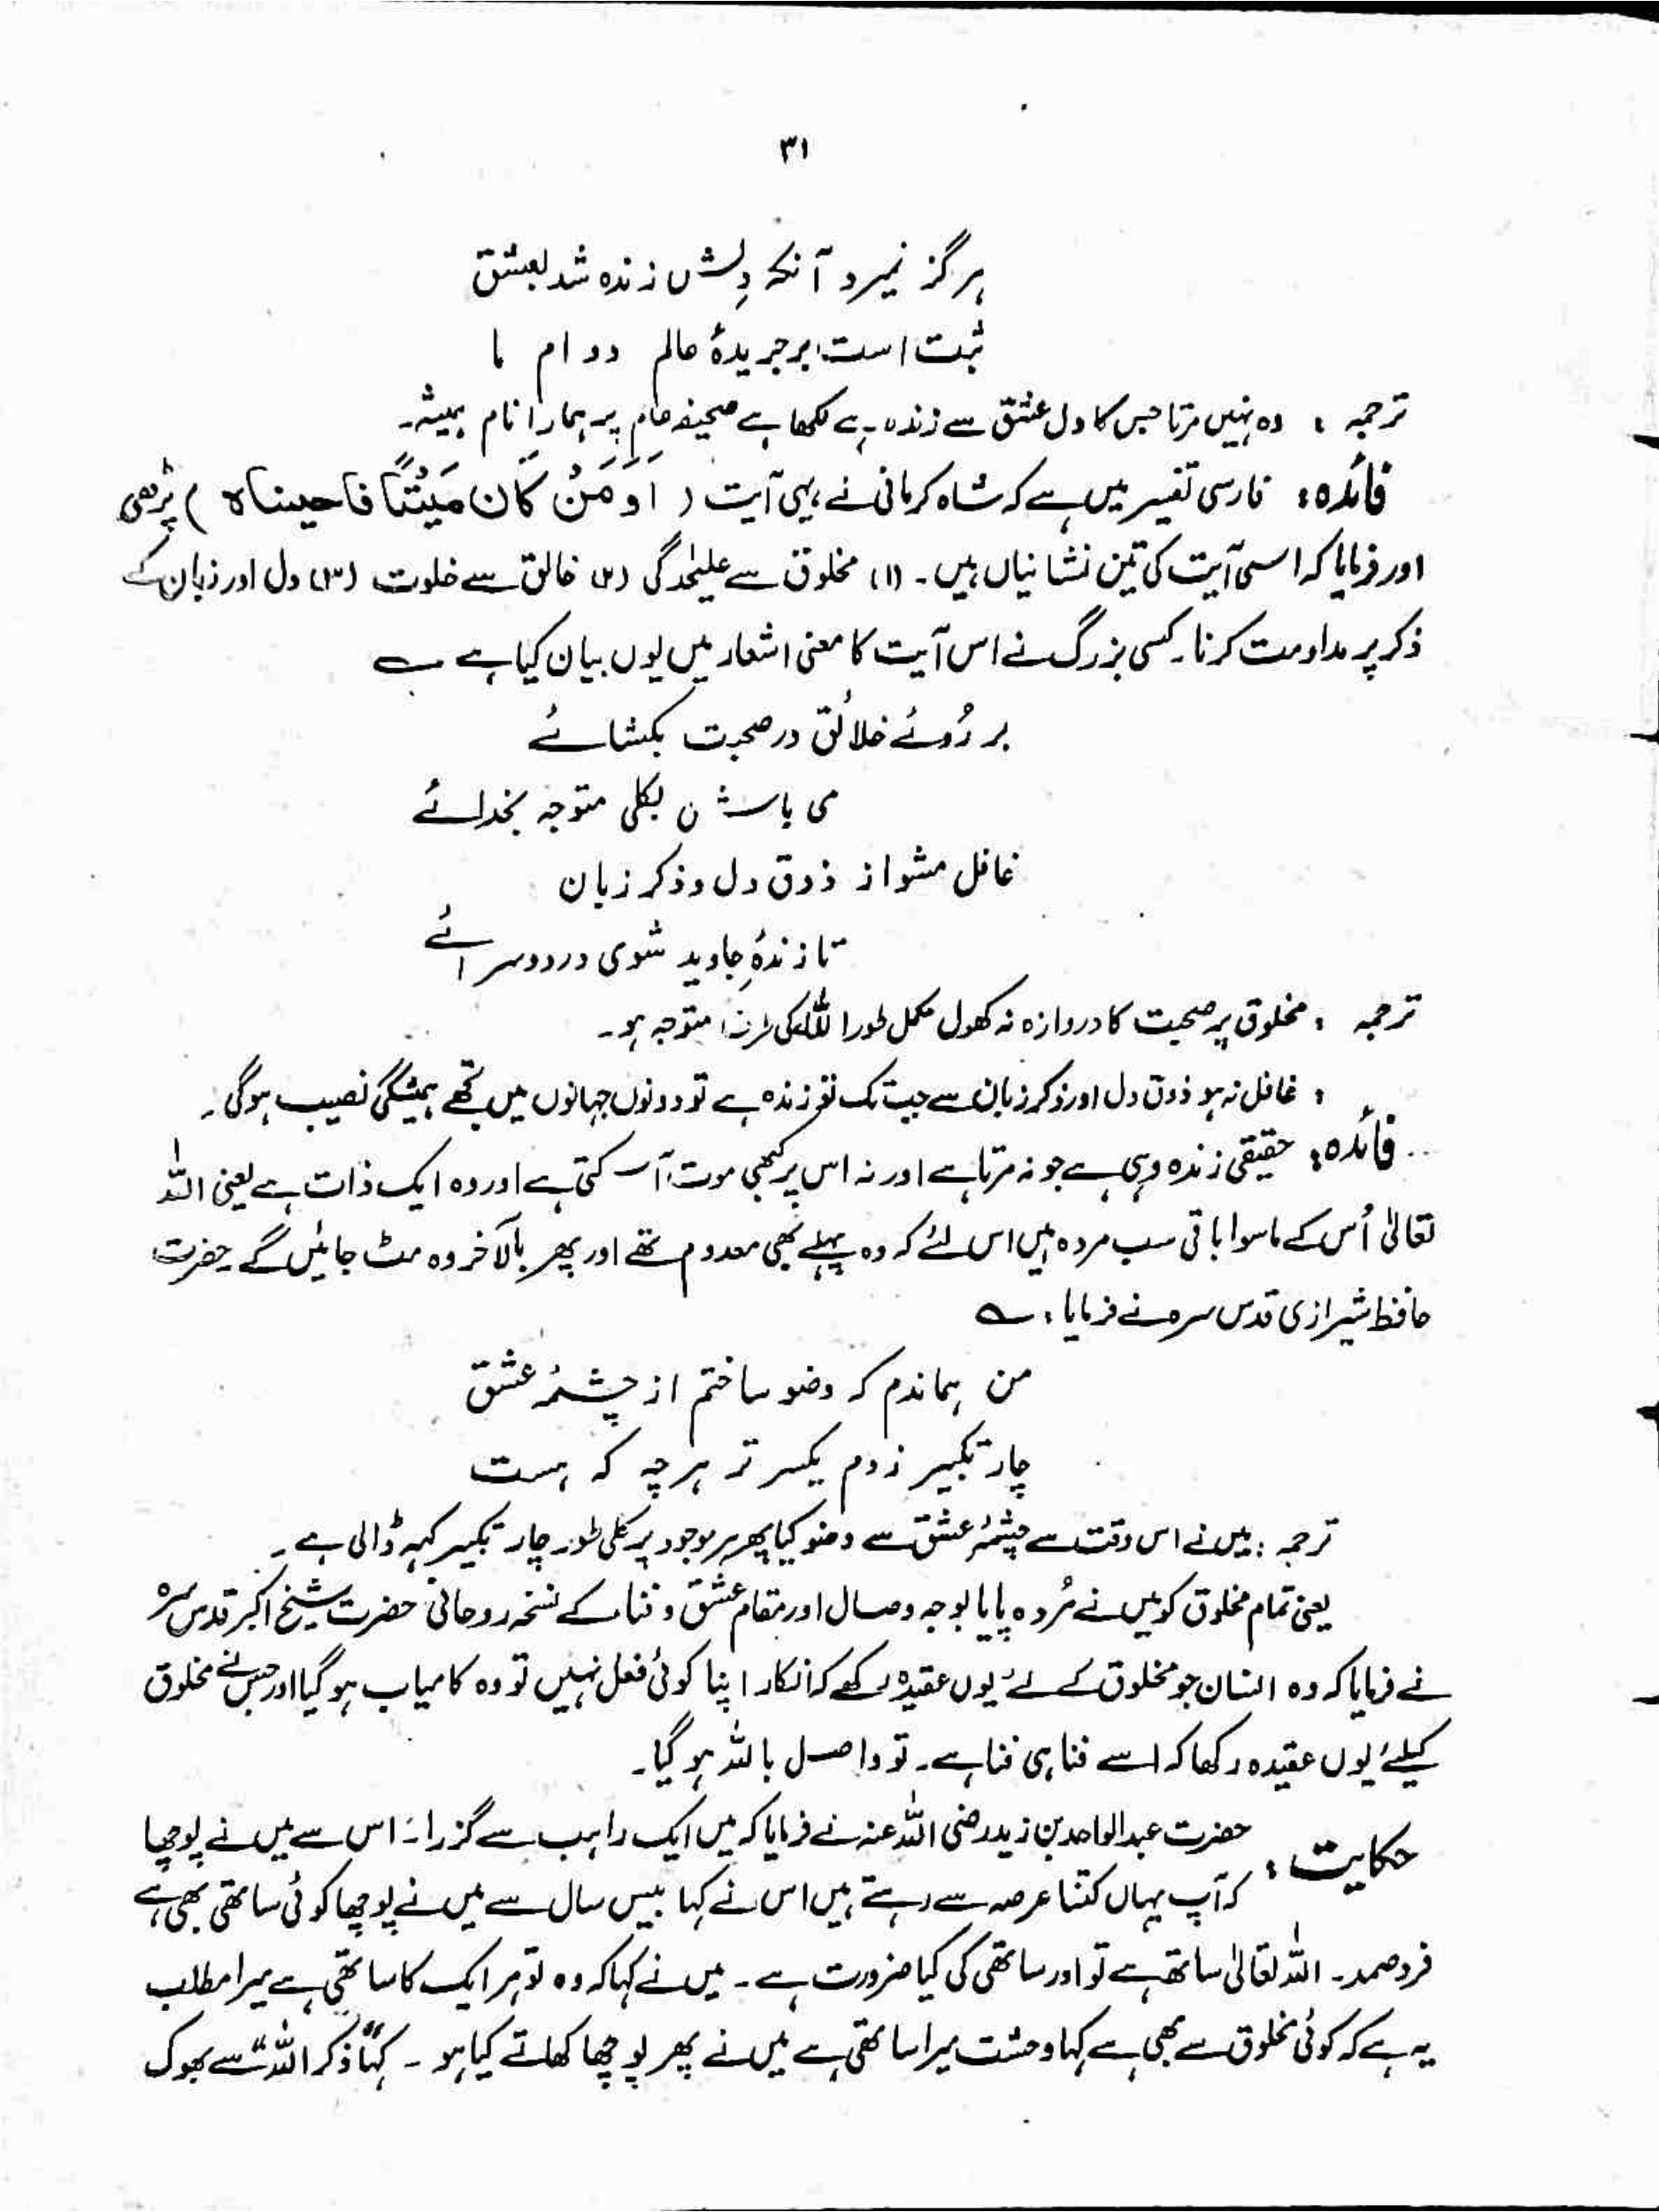 ۳۱
ہرگز نمیرد آنکہ دِلش زندہ شد بعشق
ثبت است بر جریدۂ عالم دوام ما
ترجمہ : وہ نہیں مرتا جس کا دل عشق سے زندہ ہے لکھا ہے صحیفہ عالم پر ہمارا نام ہمیشہ۔
فائدہ : فارسی تفسیر میں ہے کہ شاہ کرمانی نے یہی آیت ( اَوَ مَنْ کَان مَیْتًا فاحییناہ ) پڑھی
اور فرمایا کہ اسی آیت کی تین نشانیاں ہیں۔ (۱) مخلوق سے علیحدگی (۲) خالق سے خلوت (۳) دل اور زبان کے
ذکر پر مداومت کرنا۔ کسی بزرگ نے اس آیت کا معنی اشعار میں یوں بیان کیا ہے ؎
بر رُوئے خلائق در صحبت بکشائے
می باش بکلی متوجہ بخدائے
غافل مشو از ذوق دل و ذکر زبان
تا زندۂ جاوید شوی در دو سرائے
ترجمہ : مخلوق پر صحبت کا دروازہ نہ کھول مکمل طور اللہ کی طرف متوجہ ہو۔
: غافل نہ ہو ذوق دل اور ذکر زبان سے جب تک تو زندہ ہے تو دونوں جہانوں میں تجھے ہمیشگی نصیب ہوگی۔
فائدہ : حقیقی زندہ وہی ہے جو نہ مرتا ہے اور نہ اس پر کبھی موت آسکتی ہے اور وہ ایک ذات ہے یعنی اللہ
تعالیٰ اُس کے ماسوا باقی سب مردہ ہیں اس لئے کہ وہ پہلے بھی معدوم تھے اور پھر بالآخر وہ مٹ جائیں گے حضرت
حافظ شیرازی قدس سرہ نے فرمایا : ؎
من ہماندم کہ وضو ساختم از چشمۂ عشق
چار تکبیر زدم یکسر تر ہر چہ کہ ہست
ترجمہ : میں نے اس وقت سے چشمۂ عشق سے وضو کیا پھر ہر موجود پر کلی طور چار تکبیر کہہ ڈالی ہے۔
یعنی تمام مخلوق کو میں نے مُردہ پایا بوجہ وصال اور مقام عشق و فنا کے نسخہ روحانی حضرت شیخ اکبر قدس سرہ
نے فرمایا کہ وہ انسان جو مخلوق کے لئے یوں عقیدہ رکھے کہ انکار اپنا کوئی فعل نہیں تو وہ کامیاب ہو گیا اور جس نے مخلوق
کیلئے یوں عقیدہ رکھا کہ اسے فنا ہی فنا ہے۔ تو واصل باللہ ہو گیا۔
حکایت : حضرت عبدالواحد بن زید رضی اللہ عنہ نے فرمایا کہ میں ایک راہب سے گزرا۔ اس سے میں نے پوچھا
کہ آپ یہاں کتنا عرصہ سے رہتے ہیں اس نے کہا بیس سال سے میں نے پوچھا کوئی ساتھی بھی ہے
فرد صمد۔ اللہ تعالیٰ ساتھ ہے تو اور ساتھی کی کیا ضرورت ہے۔ میں نے کہا کہ وہ تو ہر ایک کا ساتھی ہے میرا مطلب
یہ ہے کہ کوئی مخلوق سے بھی ہے کہا وحشت میرا ساتھی ہے میں نے پھر پوچھا کھاتے کیا ہو۔ کہا "ذکر اللہ" سے بھوک